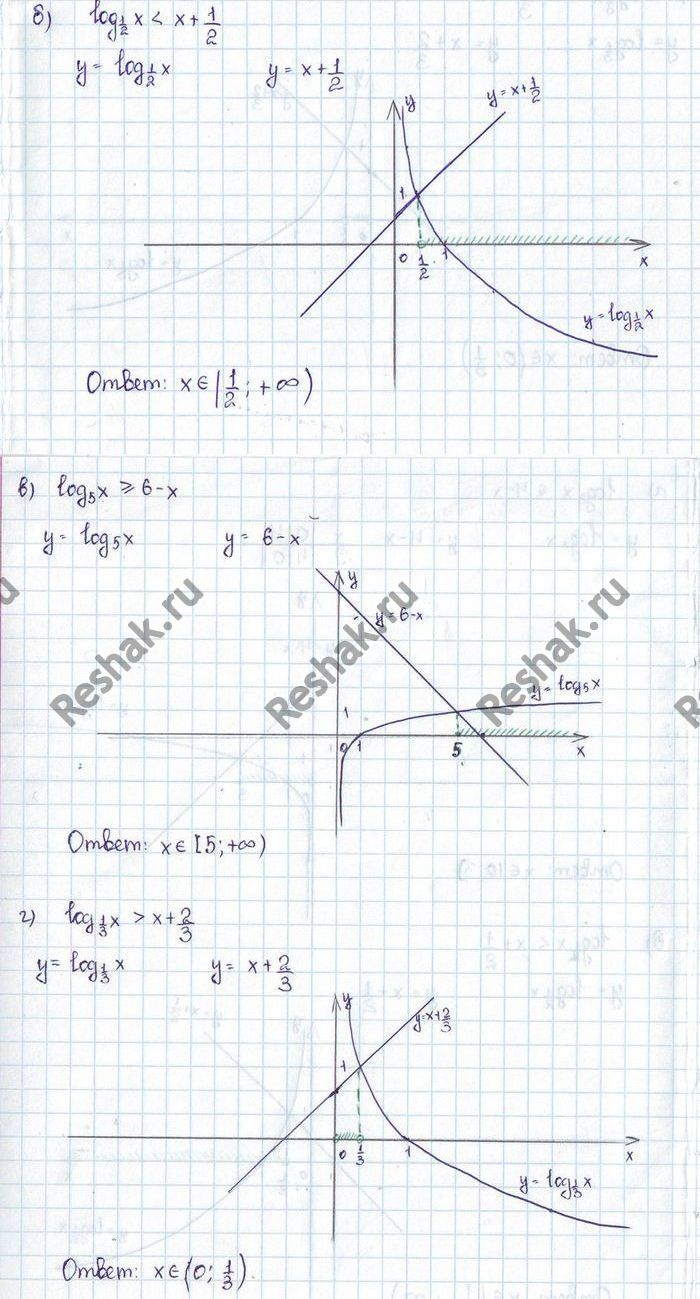 б) log½x < x+½
y= log½x y= x+½
y
y=x+½
1
0 ½ 1 x
y=log½x
Ответ: x∈(½;+∞)
в) log₅x ≥ 6-x
y= log₅x y= 6-x
y
y=6-x
1
y=log₅x
0 1 5 x
Reshak.ru Reshak.ru Reshak.ru
Ответ: x∈[5;+∞)
г) log⅓x > x+⅔
y= log⅓x y= x+⅔
y
y=x+⅔
1
0 ⅓ 1 x
y=log⅓x
Ответ: x∈(0;⅓).